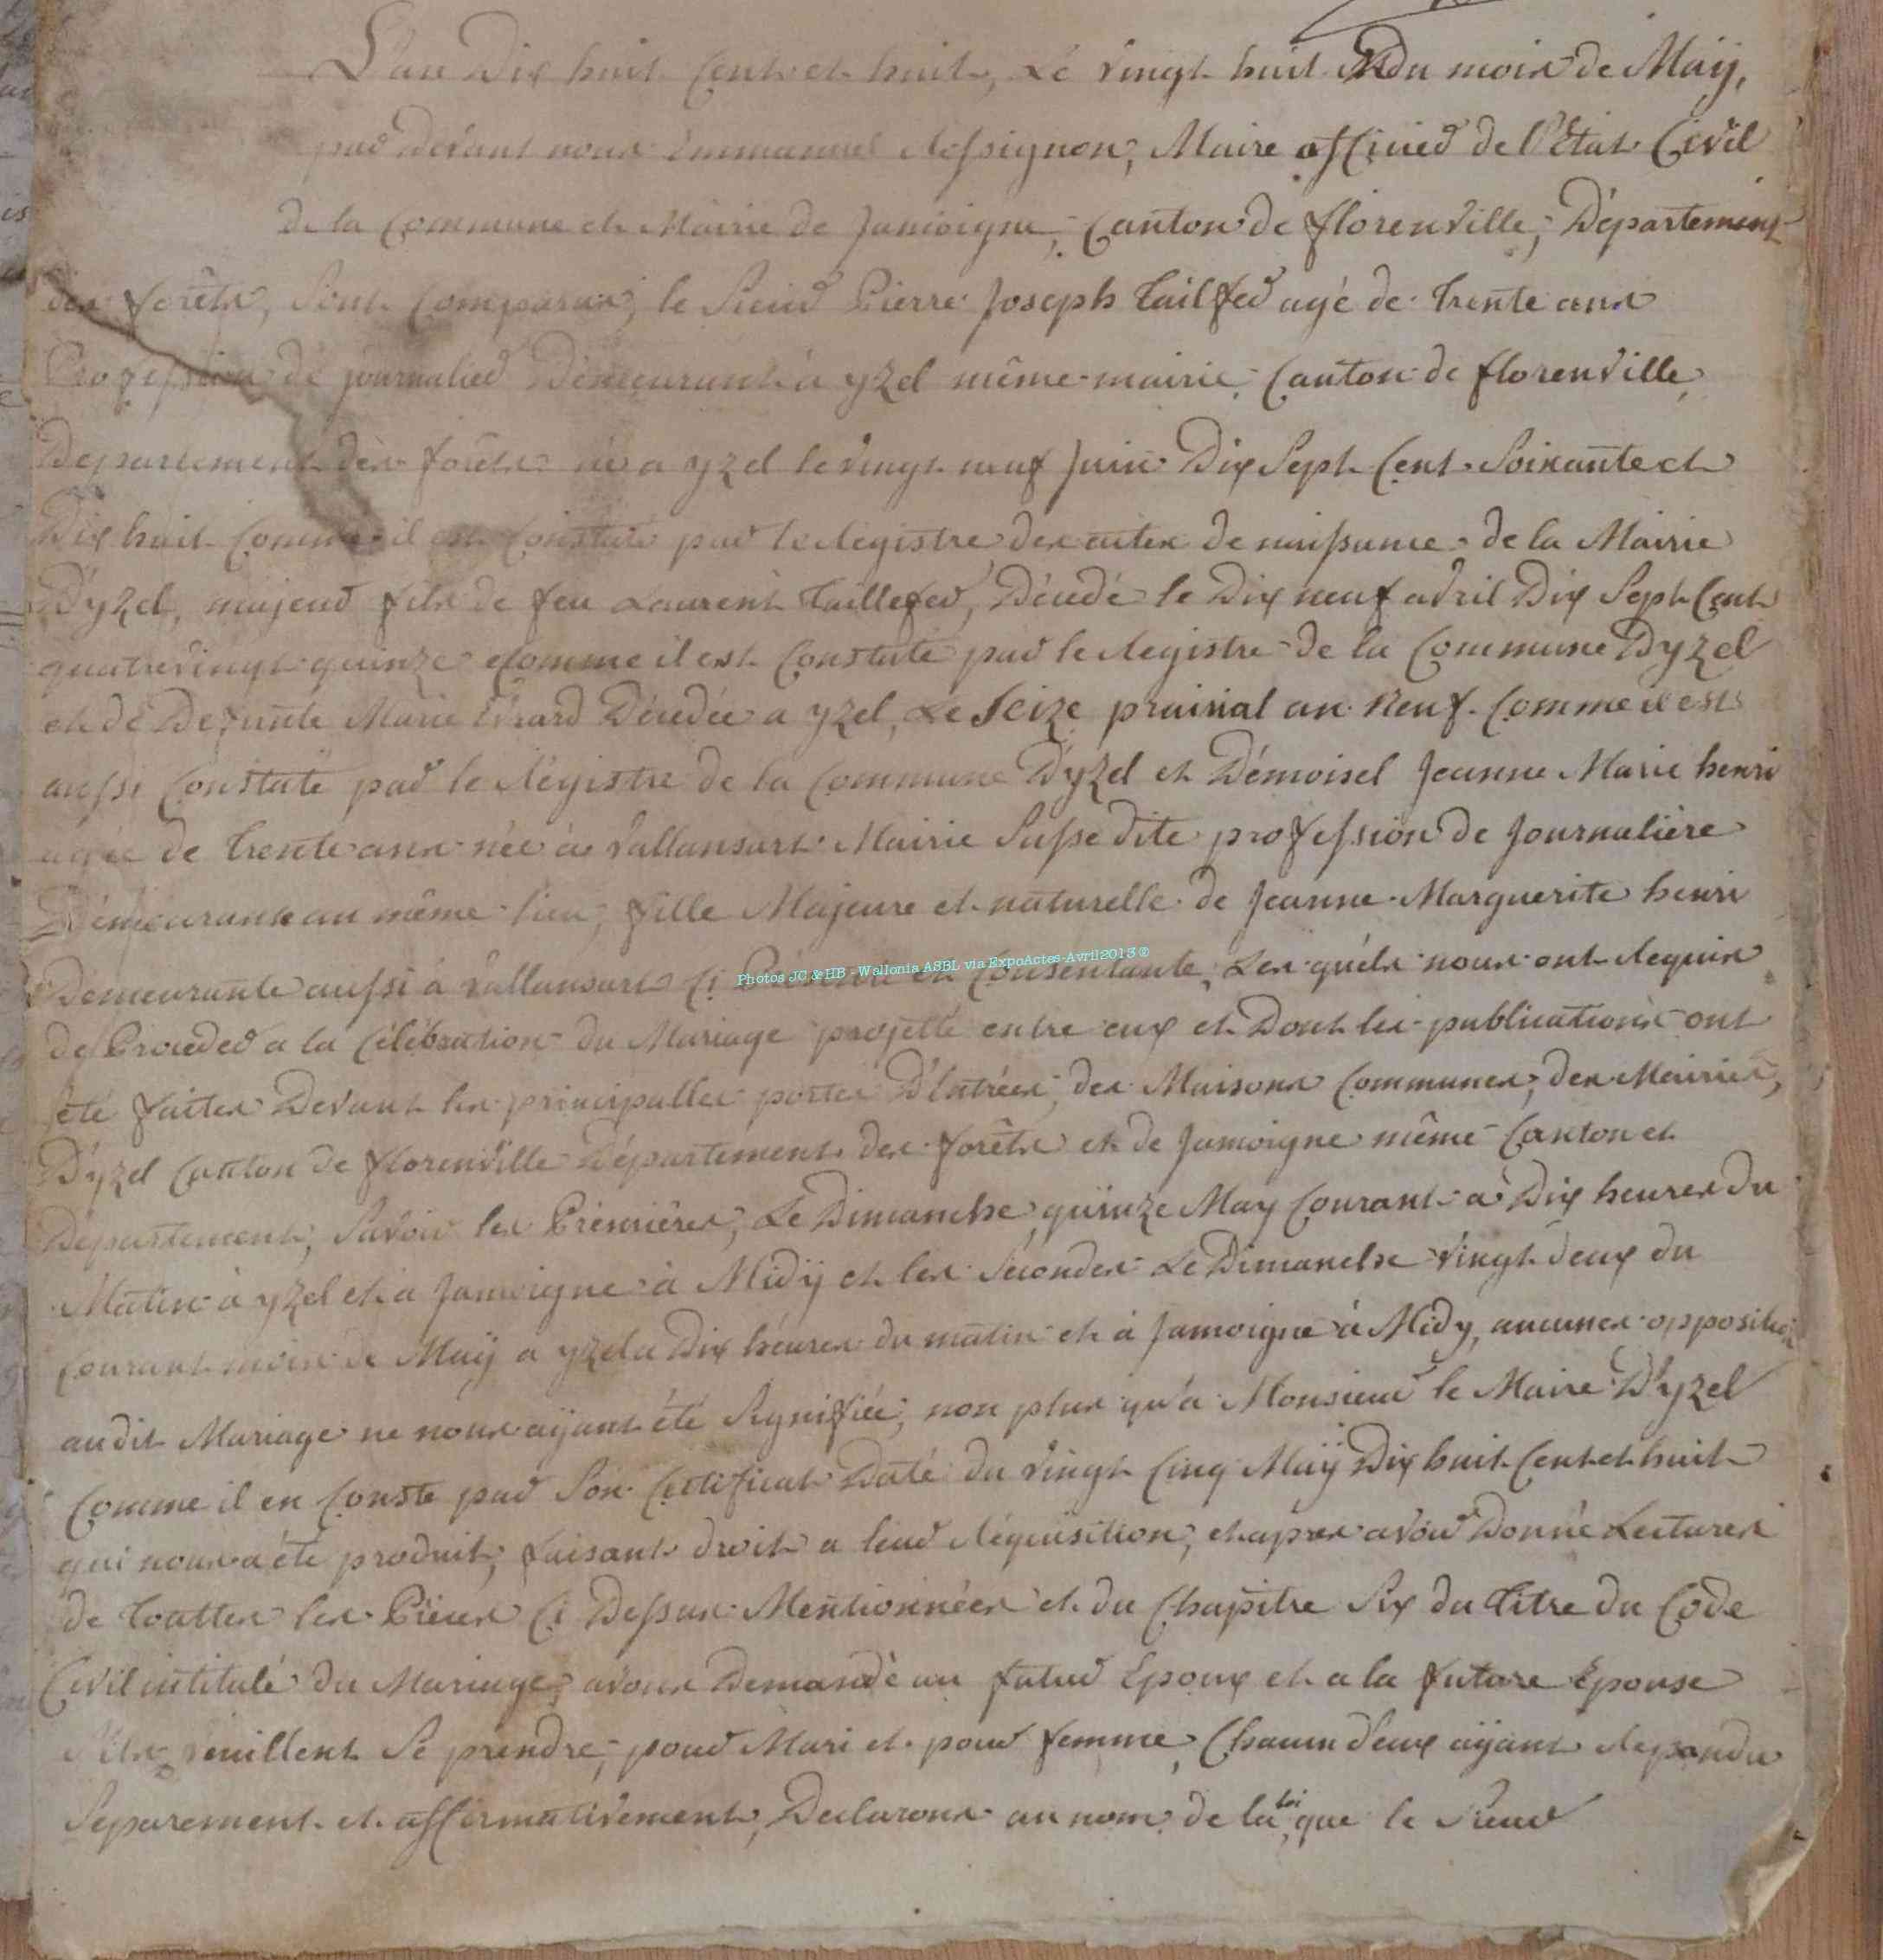 L'an Dix huit Cent et huit, Le vingt huit du mois de Maÿ,
par devant nous Emmanuel Rossignon, Maire officier de l'Etat Civil
de la Commune et Mairie de Jamoigne, Canton de florenville, Département
des forêts, Sont Comparus, le Sieur Pierre Joseph Tailfer agé de trente ans
Profession de journalier Demeurant à yzel même mairie, Canton de florenville,
Departement des forêts né a yzel le vingt neuf juin Dix Sept Cent Soixante et
Dix huit Comme il est Constaté par le Registre des actes de naissance de la Mairie
D'yzel, majeur fils de feu Laurent Taillefer, Décedé le Dix neuf avril Dix Sept Cent
quatrevingt quinze Comme il est Constaté par le Registre de la Commune D'yzel
et de Defunte Marie Evrard Décedée a yzel, Le Seize prairial an Neuf Comme il est
aussi Constaté par le Régistre de la Commune D'yzel et Démoisel Jeanne Marie henri
agée de trente ans née à vallansart Mairie Susse dite profession de Journalière
Démeurante au même lieu, fille Majeure et naturelle de Jeanne Marguerite henri
Demeurante aussi à vallansart Ci Présente et Consentante, Les quéls nous ont Requis
Photos JC & HB - Wallonia ASBL via ExpoActes-Avril2013 ©
de Proceder a la Célébration du Mariage projetté entre eux et Dont les publications ont
été faites Devant les principalles portes D'Entrées, des Maisons Communes, des Mairies,
D'yzel Canton de florenville Département des forêts et de Jamoigne même Canton et
Département, Savoir les Prémières, Le Dimanche quinze May Courant à Dix heures du
Matin à yzel et à Jamoigne à Midÿ et les Sécondes Le Dimanche vingt deux du
Courant mois de Maÿ a yzel a Dix héures du matin et à Jamoigne à Midy, aucunes opposition
audit Mariage ne nous aÿant été Signifiée, non plus qu'a Monsieur le Maire D'yzel
Comme il en Conste par Son Certificat Daté du vingt Cinq Maÿ Dix huit Cent et huit
qui nous a été produit, faisant droit a leur Réquisition, et apres avoir Donné Lectures
de touttes les Piéces Ci Dessus Mentionnées et du Chapitre Six du Titre du Code
Civil intitulé du Mariage, avons Demandé au futur Epoux et a la future Epouse
S'ils veuillent Se prendre, pour Mari et pour femme, Chacun d'eux aÿant Repondu
Separement et affirmativement, Declarons au nom de la loi que le Sieur